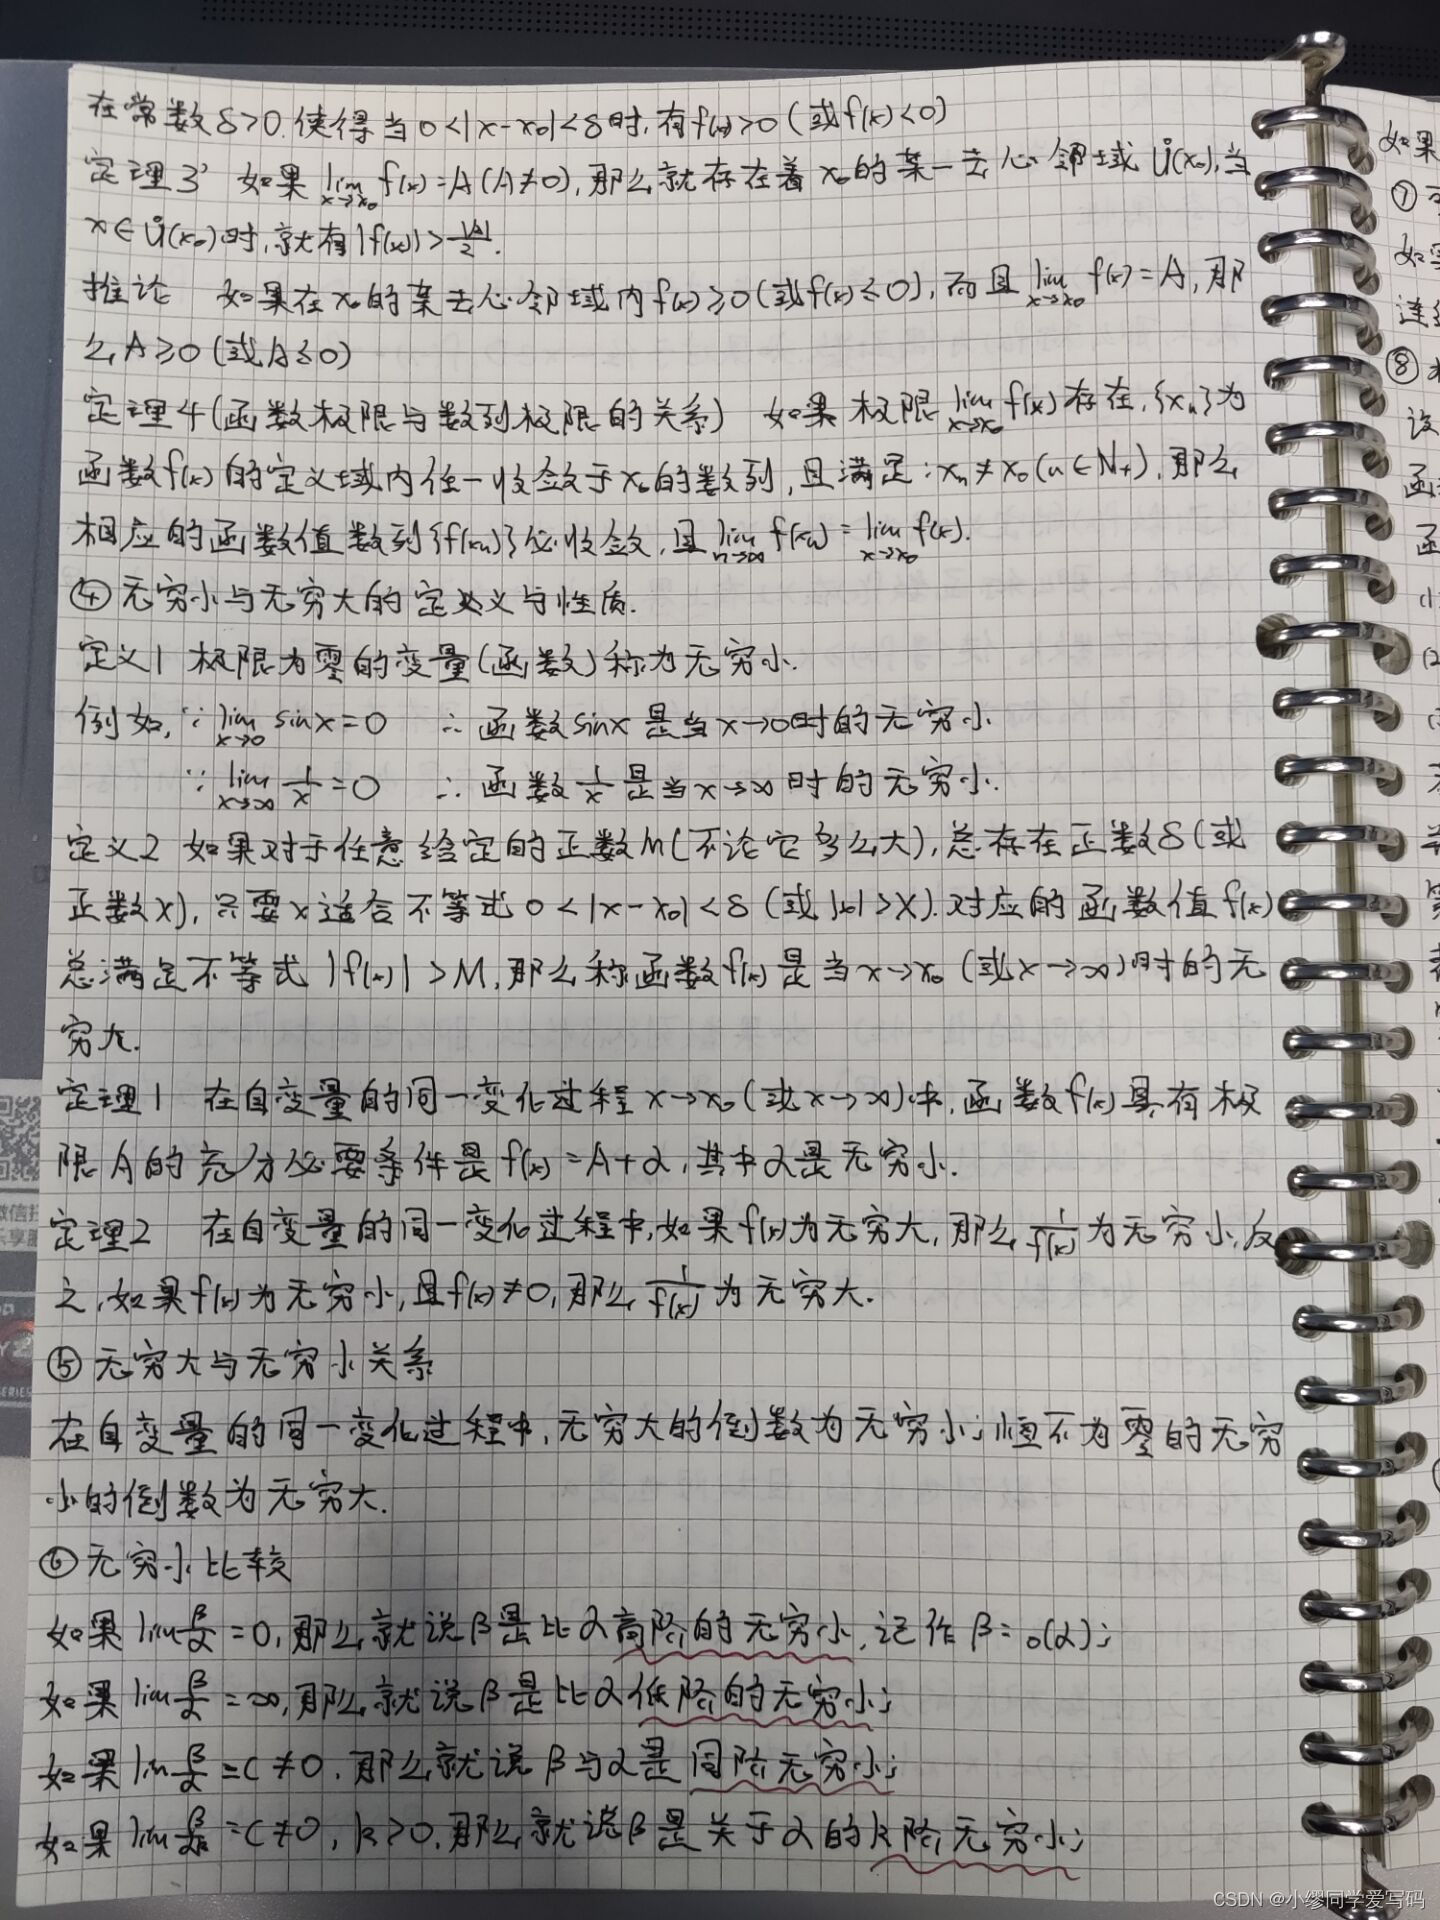 在常数δ>0.使得当0<|x-x₀|<δ时,有f(x)>0(或f(x)<0)
定理3' 如果 lim_{x→x₀} f(x)=A(A≠0),那么就存在着x₀的某一去心邻域 Ů(x₀),当
x∈Ů(x₀)时,就有|f(x)|>|A|/2.
推论 如果在x₀的某去心邻域内f(x)≥0(或f(x)≤0),而且 lim_{x→x₀} f(x)=A,那
么A≥0(或A≤0)
定理4(函数极限与数列极限的关系) 如果极限 lim_{x→x₀} f(x)存在,{xₙ}为
函数f(x)的定义域内任一收敛于x₀的数列,且满足:xₙ≠x₀(n∈N₊),那么
相应的函数值数列{f(xₙ)}必收敛,且 lim_{n→∞} f(xₙ)= lim_{x→x₀} f(x).
④无穷小与无穷大的定义与性质.
定义1 极限为零的变量(函数)称为无穷小.
例如,∵ lim_{x→0} sinx=0 ∴函数sinx是当x→0时的无穷小.
∵ lim_{x→∞} 1/x=0 ∴函数1/x是当x→∞时的无穷小.
定义2 如果对于任意给定的正数M(不论它多么大),总存在正数δ(或
正数X),只要x适合不等式0<|x-x₀|<δ(或|x|>X).对应的函数值f(x)
总满足不等式|f(x)|>M,那么称函数f(x)是当x→x₀(或x→∞)时的无
穷大.
定理1 在自变量的同一变化过程x→x₀(或x→∞)中,函数f(x)具有极
限A的充分必要条件是f(x)=A+α,其中α是无穷小.
定理2 在自变量的同一变化过程中,如果f(x)为无穷大,那么1/f(x)为无穷小,反
之,如果f(x)为无穷小,且f(x)≠0,那么1/f(x)为无穷大.
⑤无穷大与无穷小关系
在自变量的同一变化过程中,无穷大的倒数为无穷小;恒不为零的无穷
小的倒数为无穷大.
⑥无穷小比较
如果lim β/α=0,那么就说β是比α高阶的无穷小,记作β=o(α);
如果lim β/α=∞,那么就说β是比α低阶的无穷小;
如果lim β/α=C≠0,那么就说β与α是同阶无穷小;
如果lim β/αᵏ=C≠0,k>0,那么就说β是关于α的k阶无穷小;
如果
⑦
如果
连续
⑧
设
函
函
CSDN @小缪同学爱写码